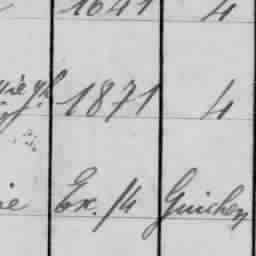 1641 4
1871 4
Ex. 14 Guichen